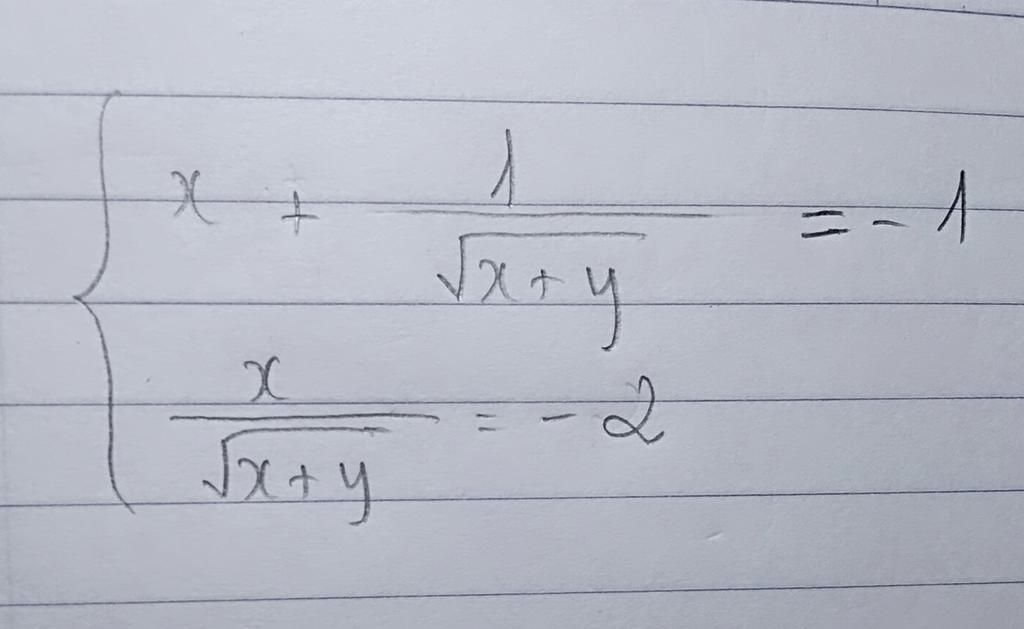 x + 1/√(x+y) = -1
x/√(x+y) = -2